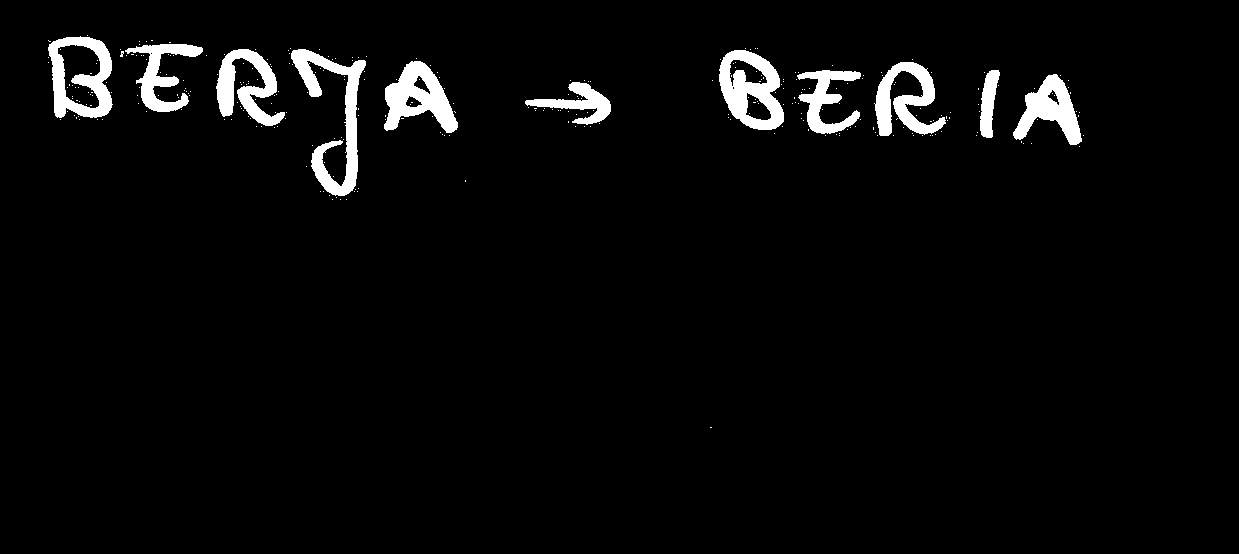 BERJA → BERIA